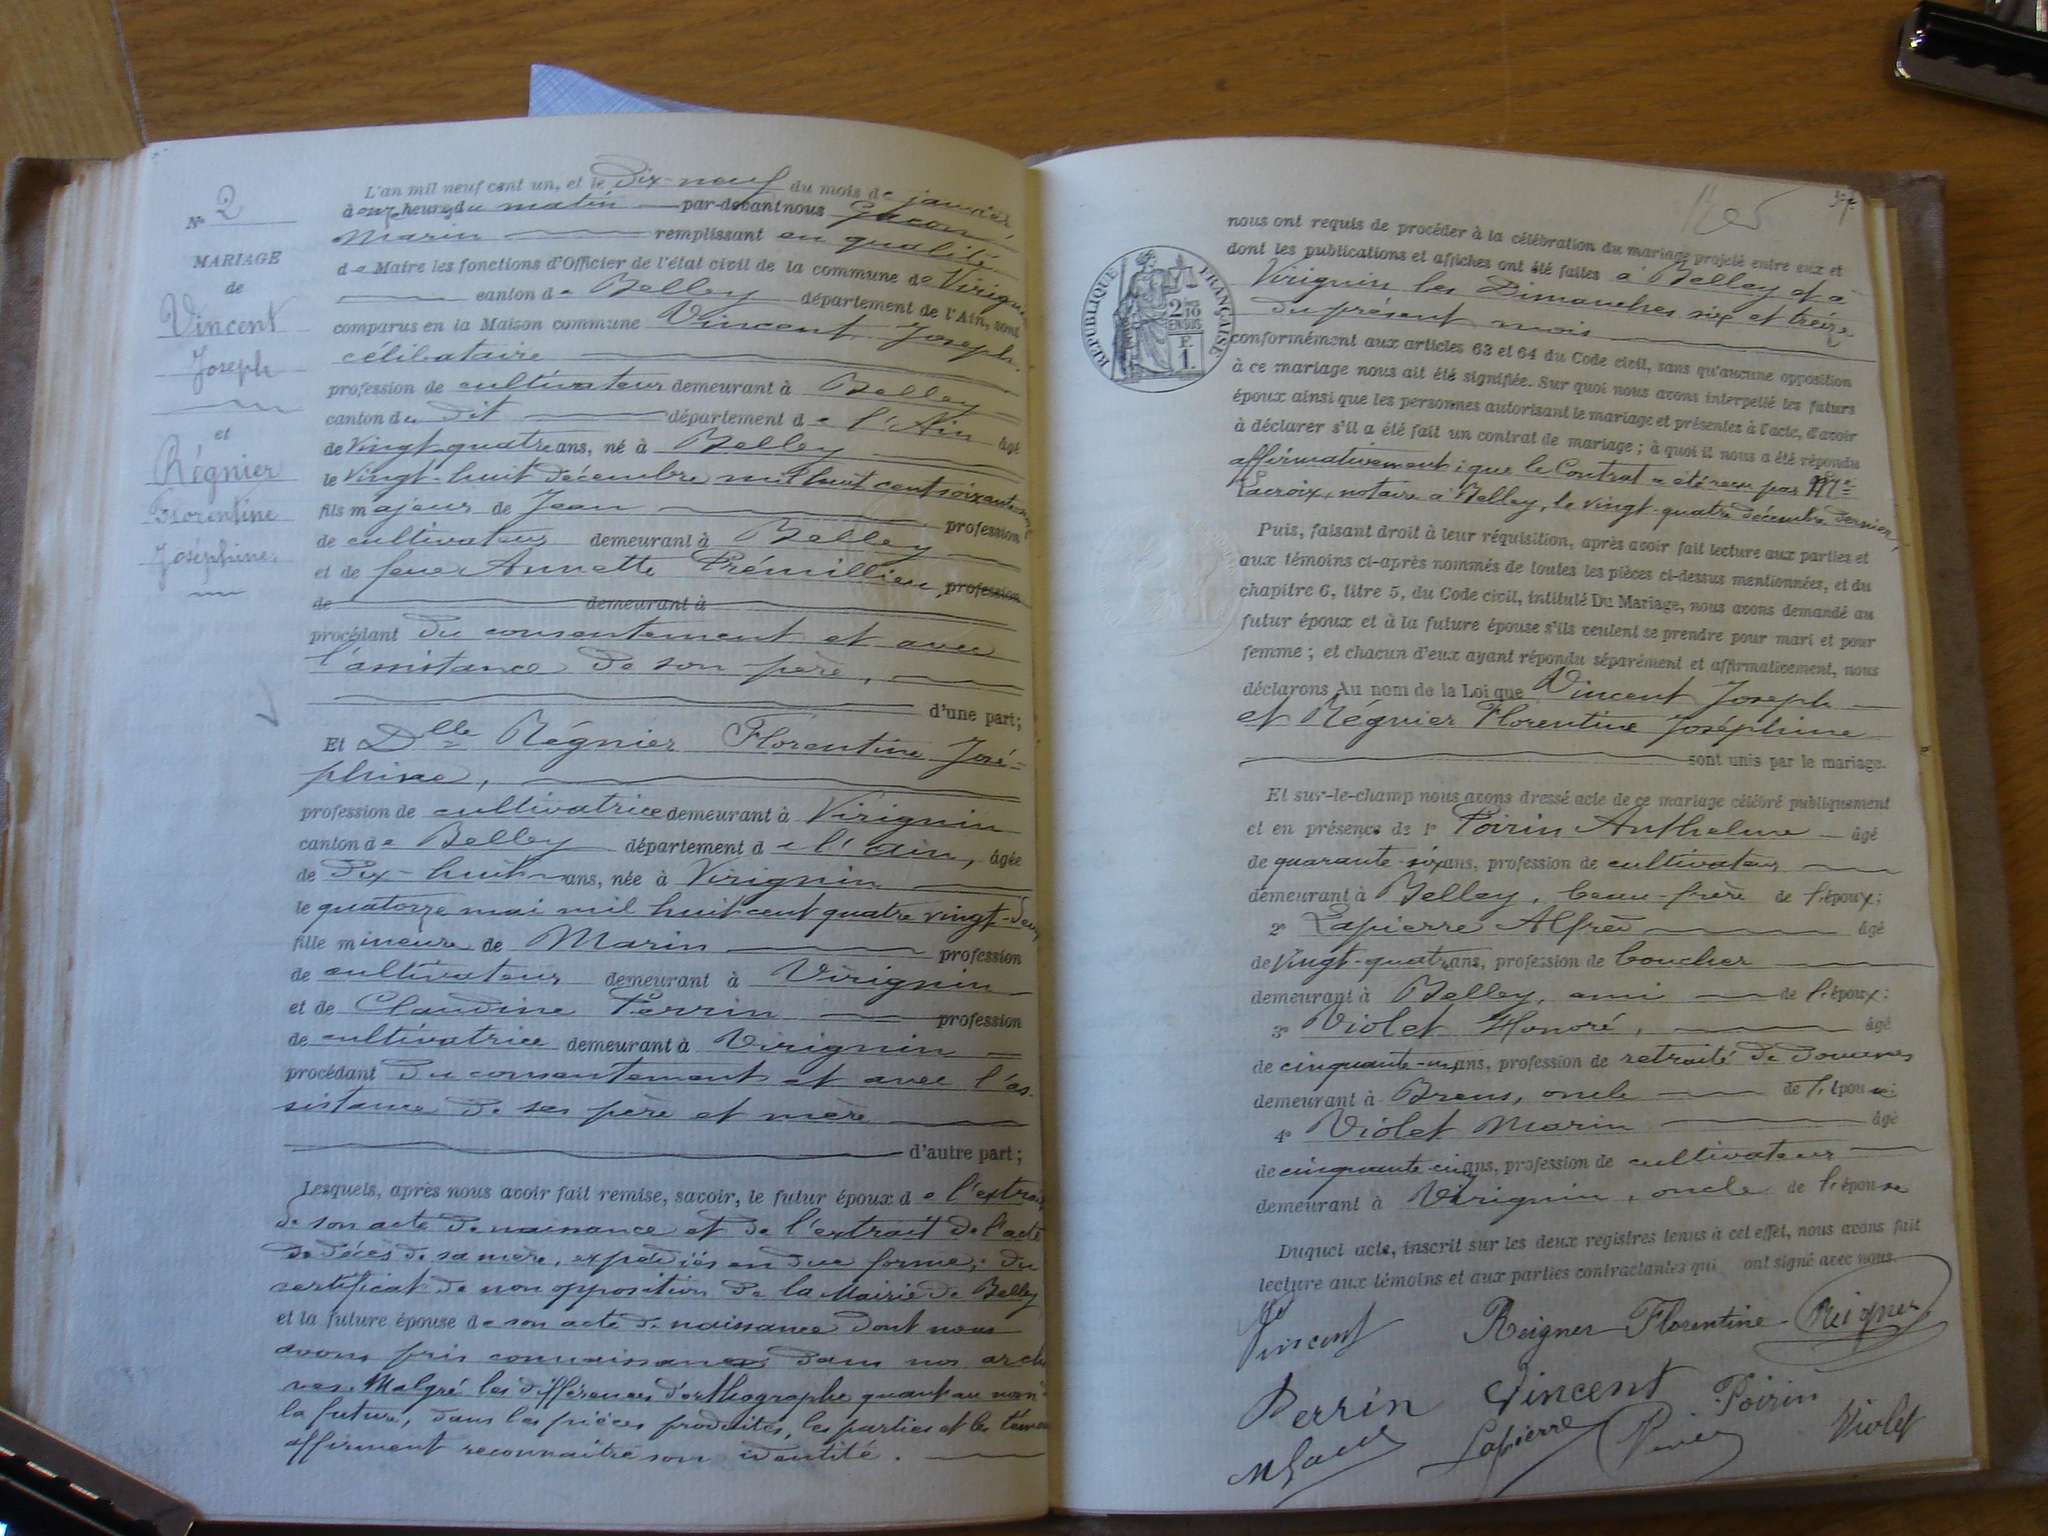 N° 2
MARIAGE
de
Vincent
Joseph
et
Régnier
Florentine
Joséphine.
L'an mil neuf cent un, et le dix-neuf du mois de janvier,
à onze heures du matin par-devant nous
Marin remplissant en qualité
de Maire les fonctions d'Officier de l'état civil de la commune de Virignin
canton de Belley département de l'Ain, sont
comparus en la Maison commune Vincent Joseph,
célibataire
profession de cultivateur demeurant à Belley
canton du dit département de l'Ain âgé
de vingt-quatre ans, né à Belley
le vingt-huit décembre mil huit cent soixante
fils majeur de Jean profession
de cultivateur demeurant à Belley
et de feue Annette Prémillieu, profession
de demeurant à
procédant du consentement et avec
l'assistance de son père,
d'une part;
Et Dlle Régnier Florentine José-
phine,
profession de cultivatrice demeurant à Virignin
canton de Belley département de l'ain, âgée
de dix-huit ans, née à Virignin
le quatorze mai mil huit cent quatre vingt-deux
fille mineure de Marin profession
de cultivateur demeurant à Virignin
et de Claudine Perrin profession
de cultivatrice demeurant à Virignin
procédant du consentement et avec l'as-
sistance de ses père et mère
d'autre part;
Lesquels, après nous avoir fait remise, savoir, le futur époux de l'extrait
de son acte de naissance et de l'extrait de l'acte
de décès de sa mère, expédiés en due forme; du
certificat de non opposition de la Mairie de Belley
et la future épouse de son acte de naissance dont nous
avons pris connaissance dans nos archi
ves. Malgré les différences d'orthographe quant au nom
la future, dans les pièces produites, les parties et les témoins
affirment reconnaître son identité.
nous ont requis de procéder à la célébration du mariage projeté entre eux et
dont les publications et affiches ont été faites à Belley et à
Virignin les Dimanches six et treize
du présent mois
RÉPUBLIQUE FRANÇAISE
2/10 EN SUS
1 F.
conformément aux articles 63 et 64 du Code civil, sans qu'aucune opposition
à ce mariage nous ait été signifiée. Sur quoi nous avons interpellé les futurs
époux ainsi que les personnes autorisant le mariage et présentes à l'acte, d'avoir
à déclarer s'il a été fait un contrat de mariage; à quoi il nous a été répondu
affirmativement; que le Contrat a été reçu par Me
Lacroix, notaire à Belley, le vingt-quatre décembre dernier,
Puis, faisant droit à leur réquisition, après avoir fait lecture aux parties et
aux témoins ci-après nommés de toutes les pièces ci-dessus mentionnées, et du
chapitre 6, titre 5, du Code civil, intitulé Du Mariage, nous avons demandé au
futur époux et à la future épouse s'ils veulent se prendre pour mari et pour
femme; et chacun d'eux ayant répondu séparément et affirmativement, nous
déclarons Au nom de la Loi que Vincent Joseph
et Régnier Florentine Joséphine
sont unis par le mariage.
Et sur-le-champ nous avons dressé acte de ce mariage célébré publiquement
et en présence de 1° Poirin Anthelme âgé
de quarante-six ans, profession de cultivateur
demeurant à Belley, beau-frère de l'époux;
2° Lapierre Alfred âgé
de vingt-quatre ans, profession de boucher
demeurant à Belley, ami de l'époux;
3° Violet Honoré, âgé
de cinquante-un ans, profession de retraité de douanes
demeurant à Brens, oncle de l'épouse;
4° Violet Marin âgé
de cinquante-cinq ans, profession de cultivateur
demeurant à Virignin, oncle de l'épouse
Duquel acte, inscrit sur les deux registres tenus à cet effet, nous avons fait
lecture aux témoins et aux parties contractantes qui ont signé avec nous.
Vincent Reigner Florentine Reigner
Perrin Vincent Poirin
Lapierre Violet